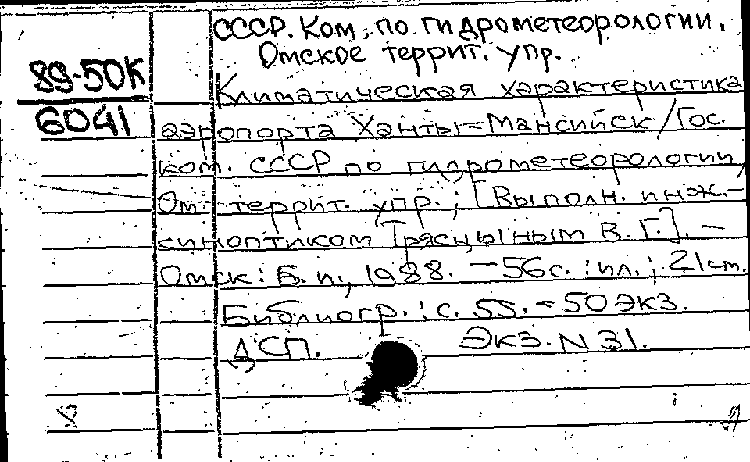 СССР. Ком. по гидрометеорологии.
Омское террит. упр.
89-50К
6041
Климатическая характеристика
аэропорта Ханты-Мансийск / Гос.
ком. СССР по гидрометеорологии,
Ом. террит. упр.; [Выполн. инж.-
синоптиком В. Г.]. –
Омск: Б. и., 1988. – 56 с.: ил.; 21 см.
Библиогр.: с. 55. – 50 экз.
ДСП. Экз. N 31.